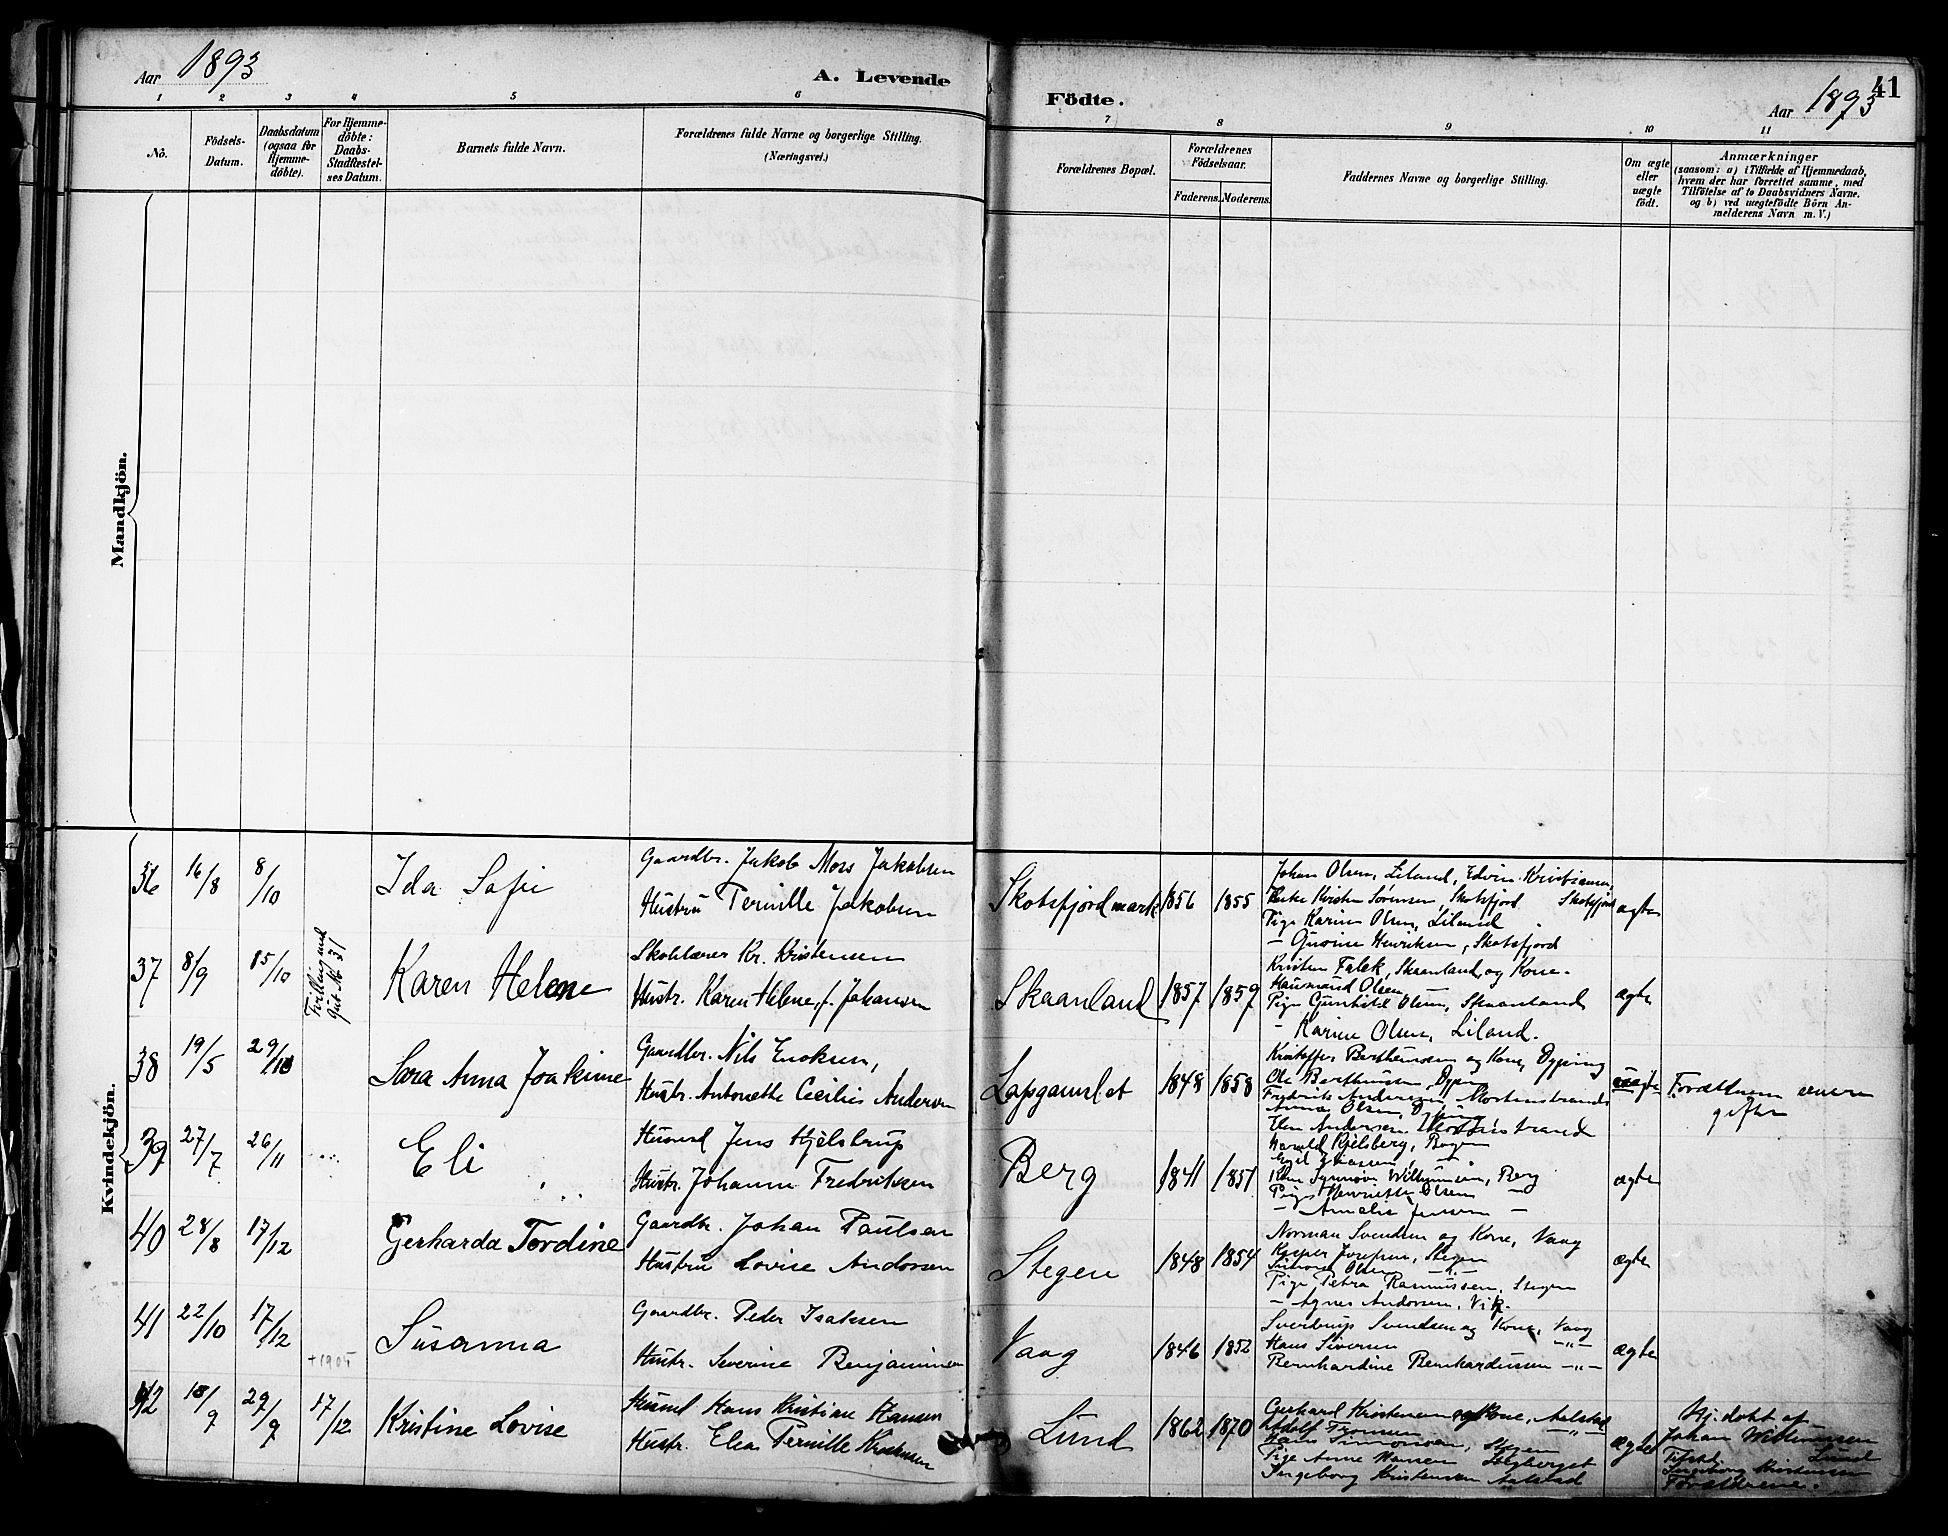 Aar 1893
A. Levende
Födte.
Aar 1893
41
1 2 3 4 5 6 7 8 9 10 11
No.
Födsels-Datum.
Daabsdatum (ogsaa for Hjemmedöbte).
For Hjemmedöbte: Daabs-Stadfæstelses Datum.
Barnets fulde Navn.
Forældrenes fulde Navne og borgerlige Stilling.
(Næringsvei.)
Forældrenes Bopæl.
Forældrenes Födselsaar.
Faderens. Moderens.
Faddernes Navne og borgerlige Stilling.
Om ægte eller uægte födt.
Anmærkninger
(saasom: a) i Tilfælde af Hjemmedaab,
hvem der har forrettet samme, med
Tilföielse af to Daabsvidners Navne.
og b) ved uægtefödte Börn An-
melderens Navn m. V.)
Mandkjön.
Kvindekjön.
36 16/8 8/10 Ida Sofie
Gaardbr. Jakob Mors Jakobsen
Hustru Pernille Jakobsen
Skotsfjordmark 1856 1855
Johan Olsen, Liland, Edvin Kristiansen,
Enke Kirsten Sørensen, Skotsfjord Skotsfjord
Pige Karine Olsen, Liland
— Henriksen, Skotsfjord
ægte
37 8/9 15/10 Tvilling med Gut No 31 Karen Helene
Skolelærer Kr. Kristensen
Hustr. Karen Helene, f. Johansen
Skaanland 1857 1859
Kristen Falck, Skaanland, og Kone.
Olsen —
Pige Gunhild Olsen, Skaanland
— Karine Olsen, Liland.
ægte
38 19/5 29/10 Sara Anna Joakime
Gaardbr. Nils Enoksen,
Hustr. Antonethe Cecilie Andersen
Lapgamslet 1848 1858
Kristoffer Bertheussen og Kone, Dyping
Ole Bertheussen, Dyping
Fredrik Andersen, Mortenstrand
Anna Olsen, Dyping
Elen Andersen, Mortenstrand
uægte
Forældrene senere
gifte
39 27/7 26/11 Eli
Husmd Jens Hjelstrup
Hustr. Johanne Fredriksen
Berg 1841 1851
Harald Kjelsberg, Bogen
Wilhumsen, Berg
Pige Henriette Olsen —
— Amalie Jensen —
ægte
40 28/8 17/12 Gerharda Tordine
Gaardbr. Johan Paulsen
Hustru Lovise Andorsen
Stegen 1848 1854
Norman Svendsen og Kone, Vaag
Kasper Josefsen, Stegen
Simon Olsen —"—
Pige Petra Rasmussen, Stegen
— Agnes Andorsen, Vik.
ægte
41 22/10 17/12 +1905 Susanna
Gaardbr. Peder Isaksen
Hustr. Severine Benjaminsen
Vaag 1846 1852
Sverdrup Svendsen og Kone, Vaag
Hans Siversen —"—
Bernhardine Bernhardussen —"—
ægte
42 18/9 29/9 17/12 Kristine Lovise
Husmd Hans Kristian Hansen
Hustr. Elea Pernille Kristensen
Lund 1862 1870
Gerhard Kristensen og Kone, Aalstad
Adolf Fronsen —"—
Hans Simonsen, Stegen
Pige Anne Hansen
Ingeborg Kristensen Aalstad
ægte
Hj. döbt af
Johan Wilhumsen
Lund
Tilst.
Ingeborg Kristensen
Forældrene.